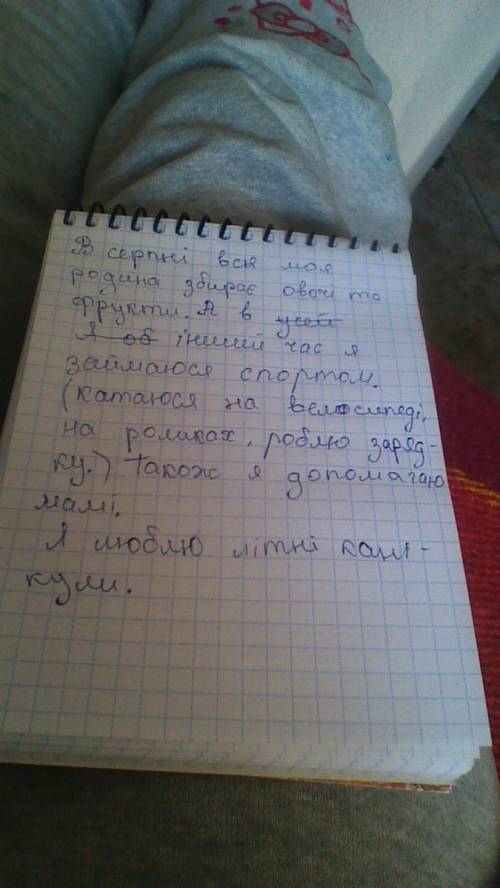 В серпні вся моя
родина збирає овочі та
фрукти. А в
Я об інший час я
займаюся спортом.
(катаюся на велосипеді,
на роликах, роблю заряд-
ку.) Також я допомагаю
мамі.
Я люблю літні кані-
кули.